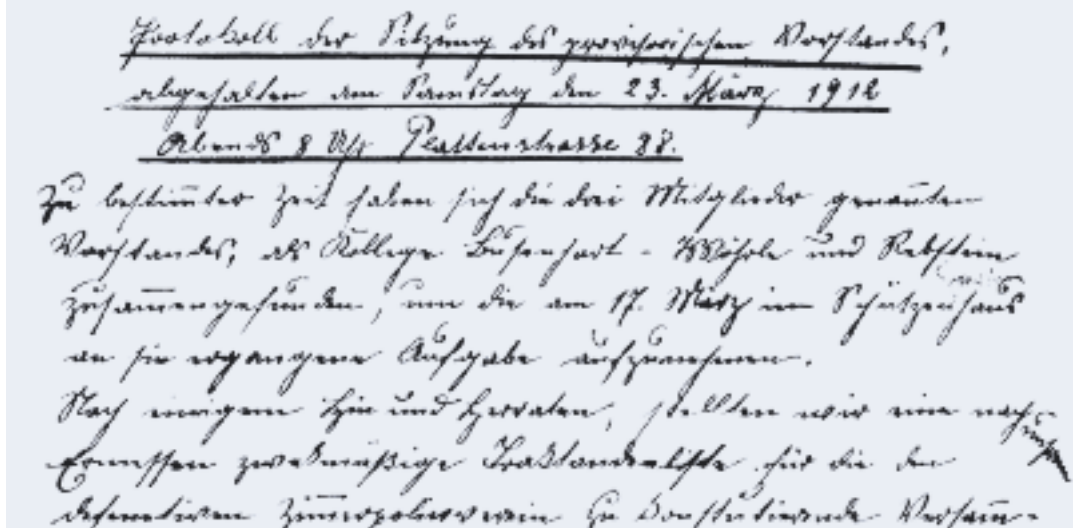 Protokoll der Sitzung des provisorischen Vorstandes,
abgehalten am Samstag den 23. März 1912
Abends 8 Uhr Plattenstrasse 88.
Zu bestim̄ter Zeit haben sich die drei Mitglieder genan̄ten
Vorstandes, als Kollege Busenhart - Wöhrle und Rebstein
zusam̄engefunden, um die am 17. März im Schützenhaus
an sie ergangene Aufgabe aufzunehmen.
Nach einigem Hin und Herraten, stellten wir eine nach
Ermessen zwekmäßige Traktandenliste für die den
definitiven zu konstituirende Versam̄-